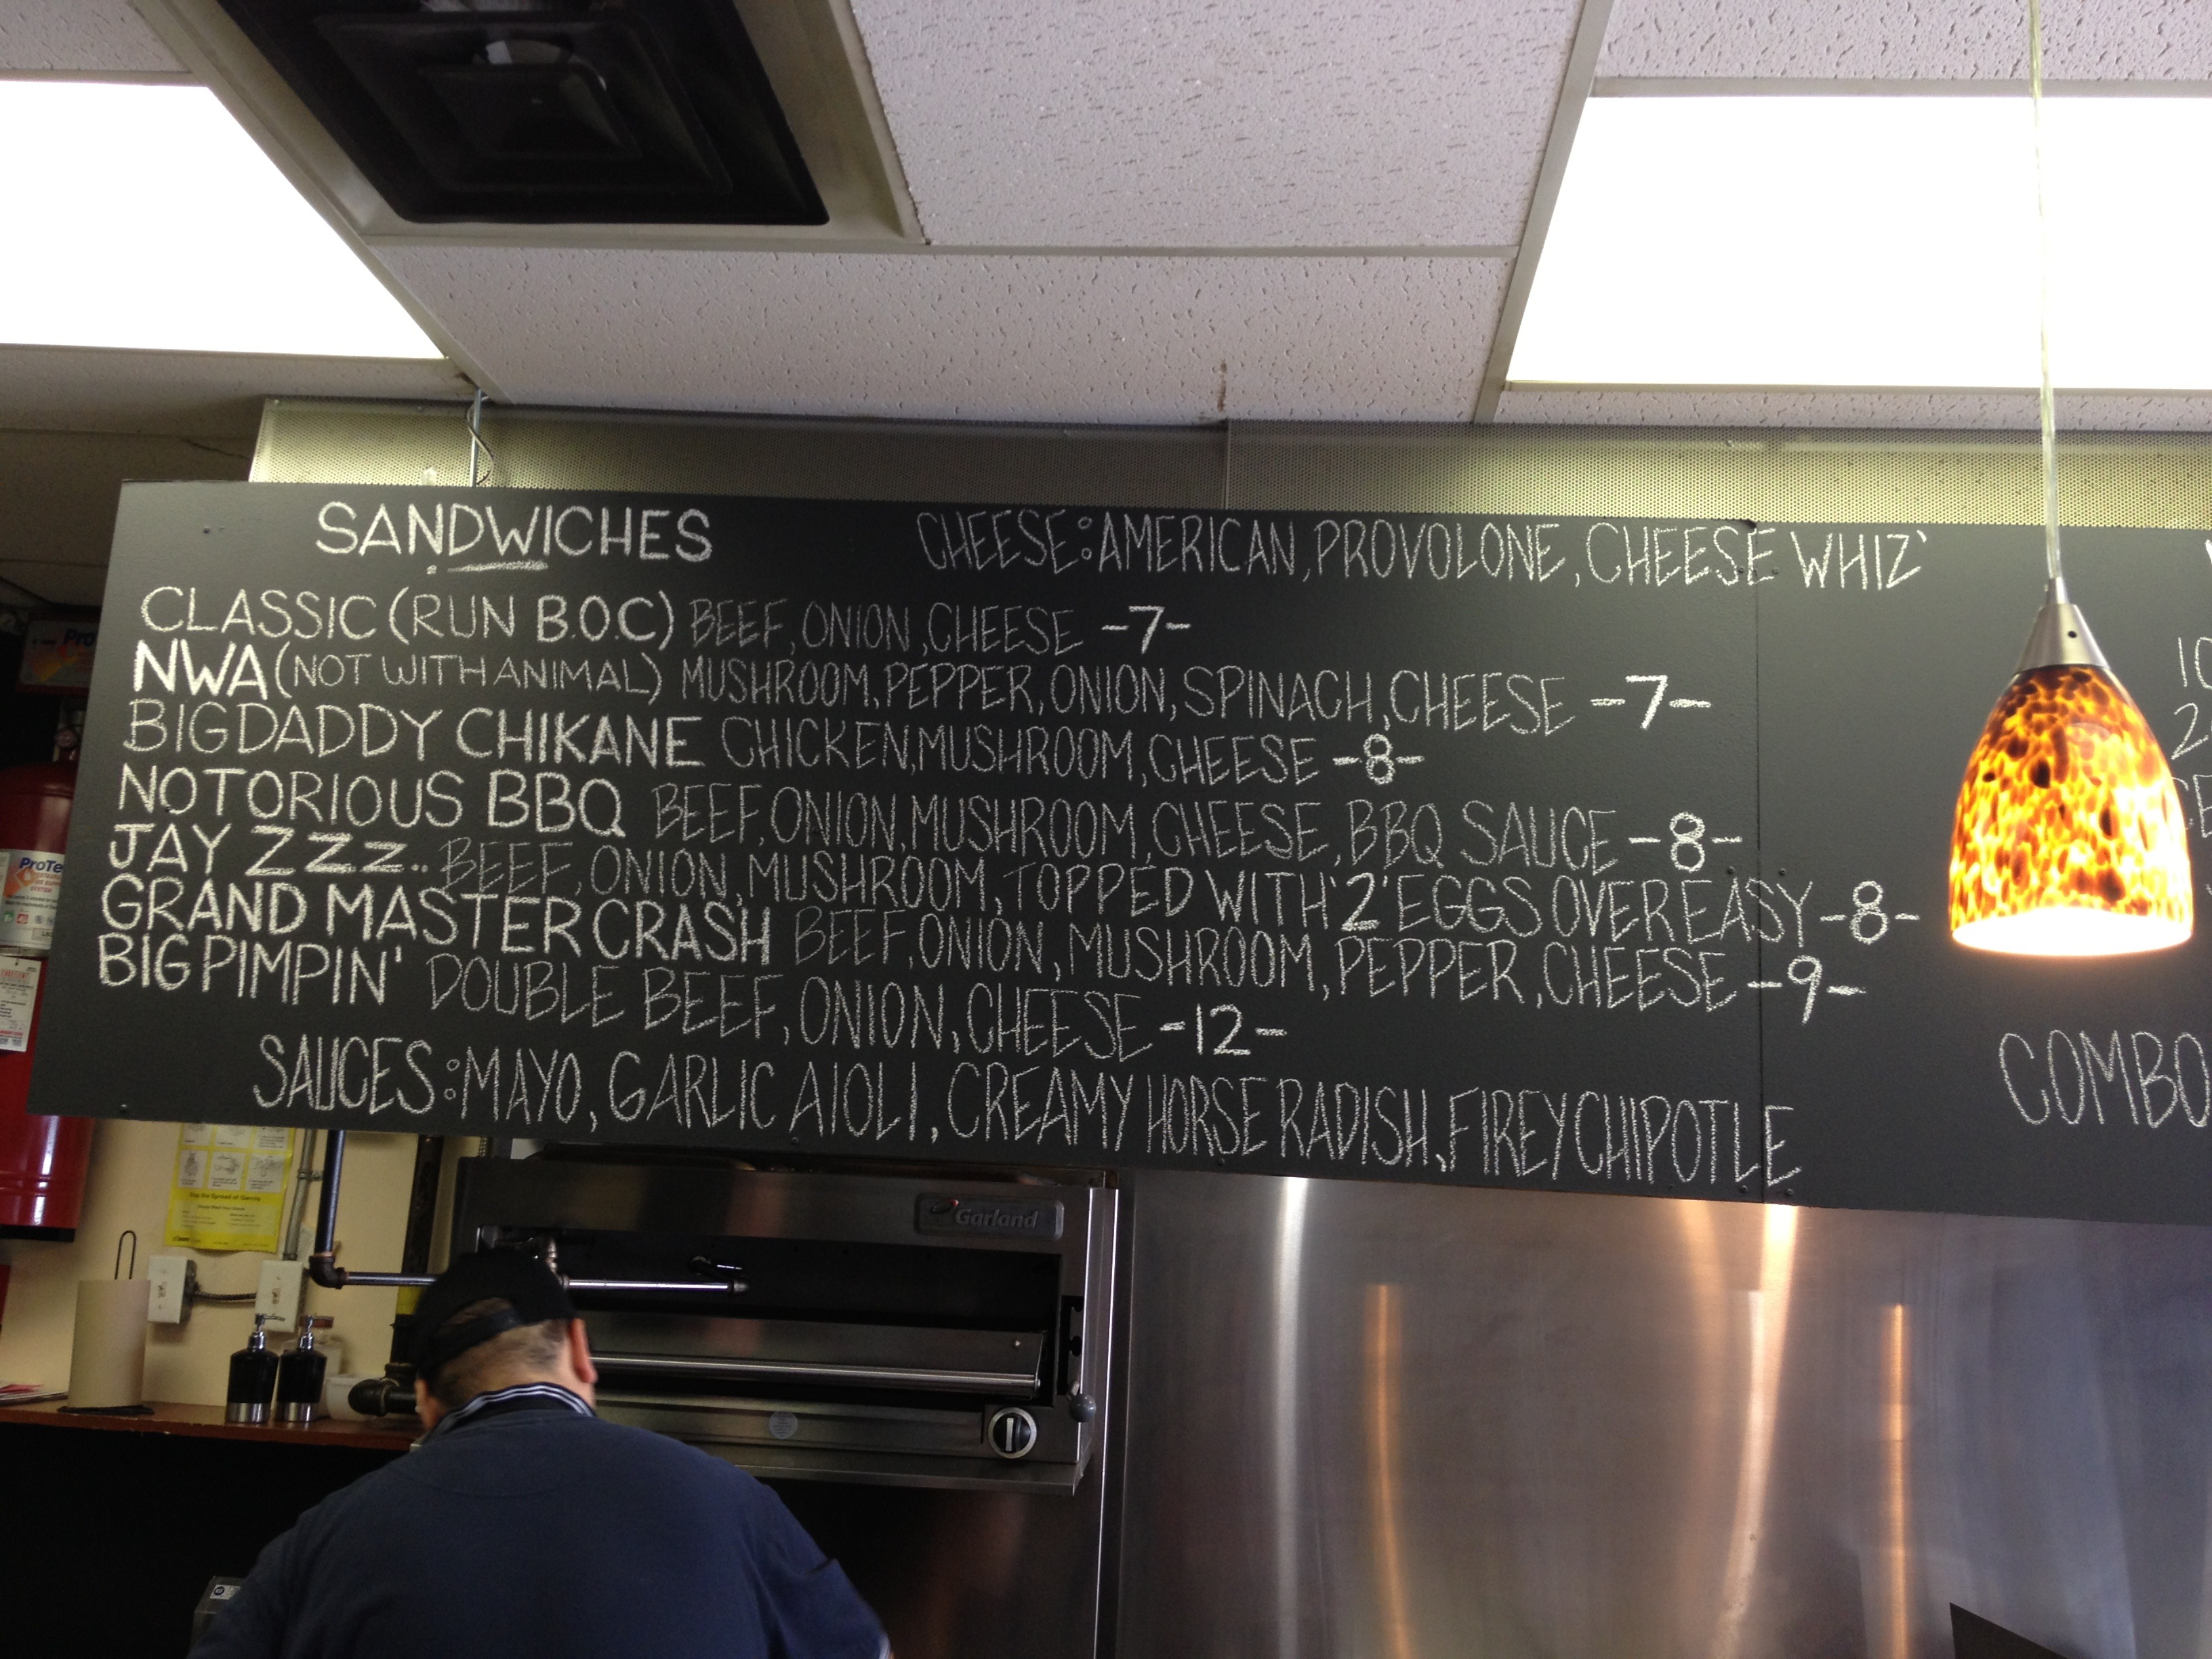 SANDWICHES
CHEESE: AMERICAN, PROVOLONE, CHEESE WHIZ'
CLASSIC (RUN B.O.C) BEEF, ONION, CHEESE -7-
NWA (NOT WITH ANIMAL) MUSHROOM, PEPPER, ONION, SPINACH, CHEESE -7-
BIG DADDY CHIKANE CHICKEN, MUSHROOM, CHEESE -8-
NOTORIOUS BBQ BEEF, ONION, MUSHROOM, CHEESE, BBQ SAUCE -8-
JAY ZZZ.. BEEF, ONION, MUSHROOM, TOPPED WITH '2' EGGS OVER EASY -8-
GRAND MASTER CRASH BEEF, ONION, MUSHROOM, PEPPER, CHEESE -9-
BIG PIMPIN' DOUBLE BEEF, ONION, CHEESE -12-
SAUCES: MAYO, GARLIC AIOLI, CREAMY HORSE RADISH, FIREY CHIPOTLE
COMBO
Garland
Stop the Spread of Germs